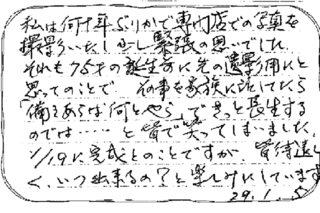 私は何十年ぶりかで専門店での写真を
撮影いたし少し緊張の思いでした
それも75才の誕生前に先の遺影用にと
思ってのことで その事を家族に話してたら
「備えあらば何とやら」できっと長生する
のでは……と皆で笑ってしまいました
1/19に完成とのことですが 皆待遠し
く、いつ出来るの?と楽しみにしています
29.1.5